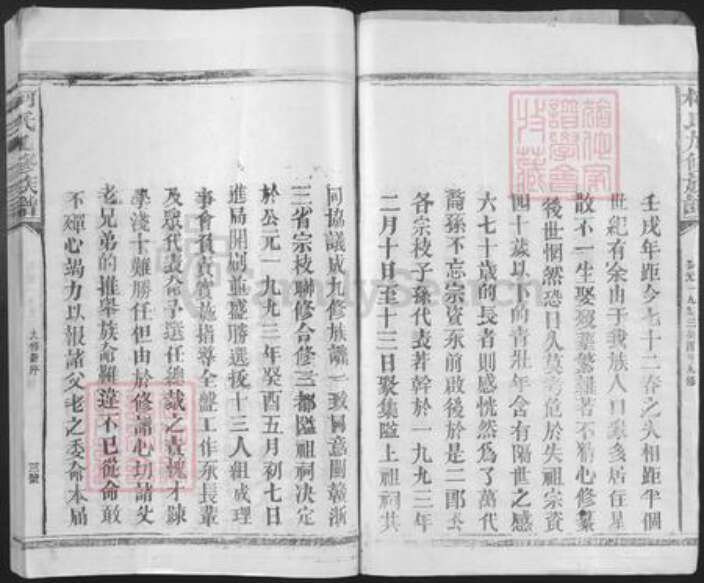 壬戌年距今七十二春之久相距半個
世紀有余由于我族人口衆多居住星
散不一生娶殁葬繁雜若不精心修纂
後世惘然恐日久莫考危於失祖宗資
四十歲以下的青壯年舍有隔世之感
六七十歲的長者則感恍然為了萬代
裔孫不忘宗資承前啟後於是二郎公
各宗枝子孫代表若幹於一九九三年
二月十日至十三日聚集隘上祖祠共
同協議成九修族譜一致同意閩贛浙
三省宗枝聯修合修三都隘祖祠決定
於公元一九九三年癸酉五月初七日
進局開刷重盛勝選抚十三人組成理
事會負責實施指導全盤工作永長輩
及眾代表命予選任總裁之責愧才疎
學淺十難勝任但由於修譜心切諸父
老兄弟的推舉族命難違不已從命敢
不殫心竭力以報諸父老之委命本届
氏九修族譜
九修新序
三號
FamilySearch